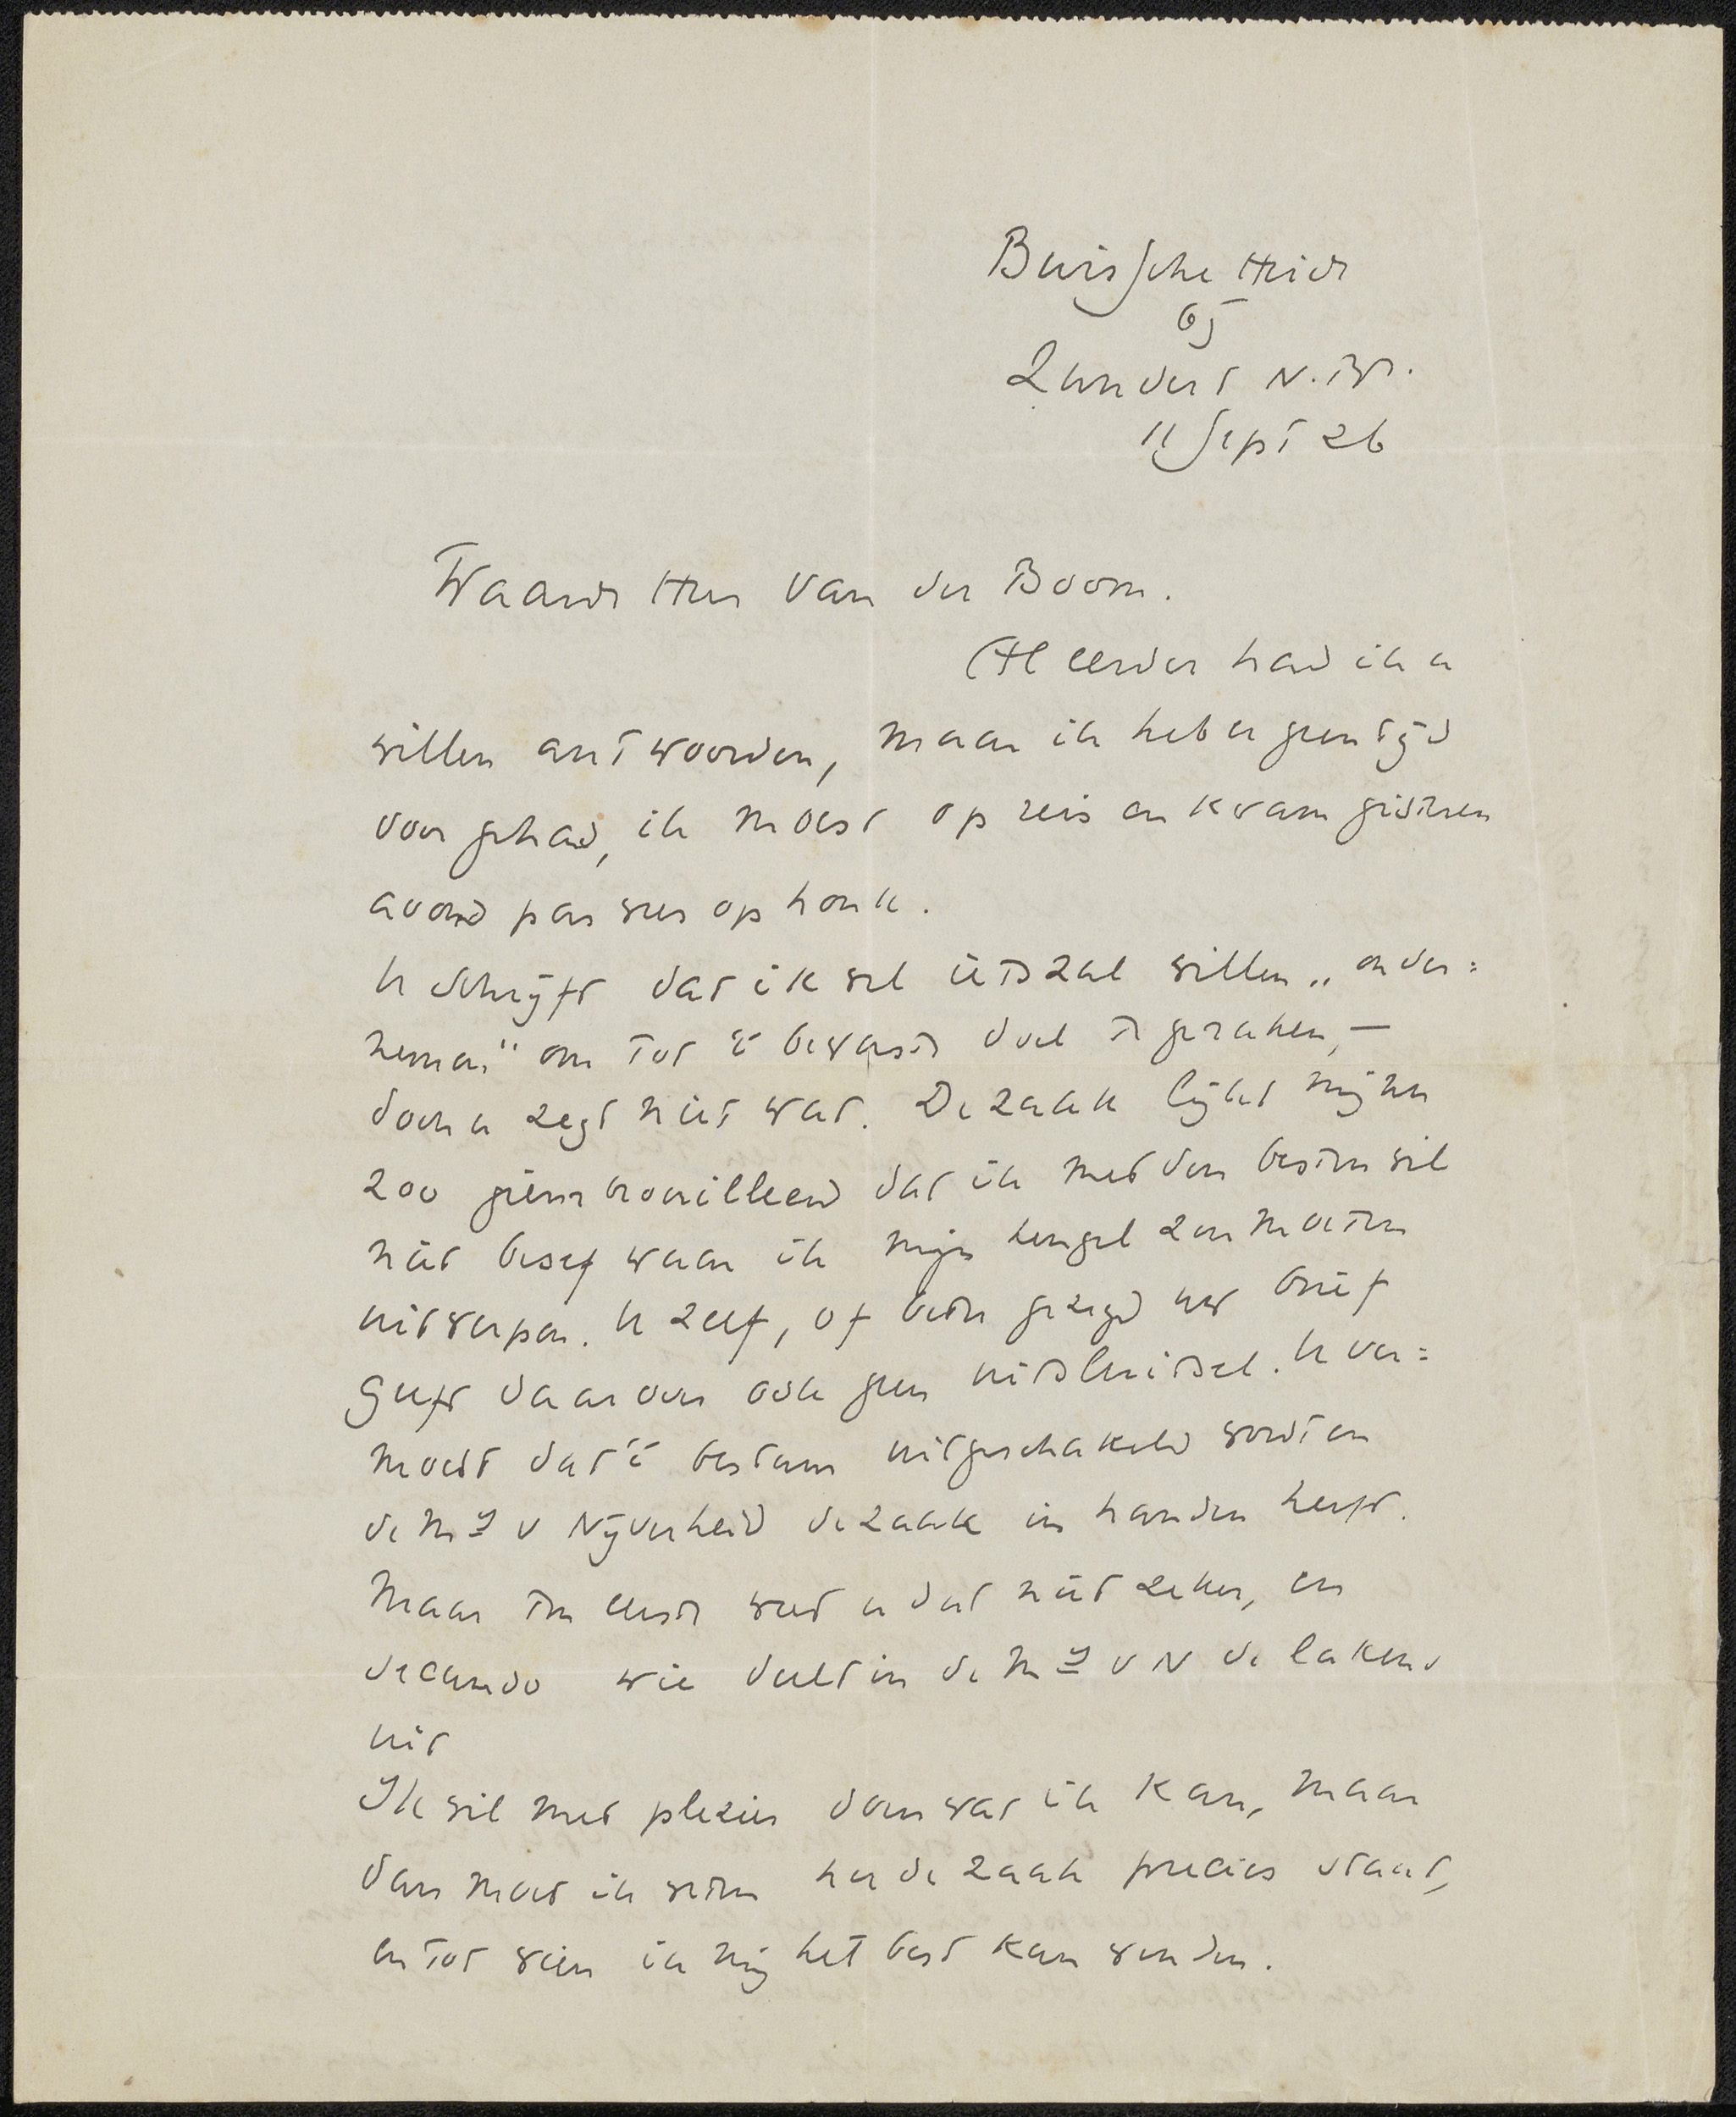 Buissche Heide
bij
Zundert N. Br.
11 Sept 26
Waarde Heer Van der Boom.
Al eerder had ik u
willen antwoorden, maar ik heb er geen tijd
voor gehad, ik moest op reis en kwam gisteren
avond pas weer op honk.
U schrijft dat ik wel iets zal willen „onder=
nemen" om tot 't bewuste doel te geraken, —
doch u zegt niet wat. De zaak lijkt mij nu
zoo geëmbrouilleerd dat ik met den besten wil
niet besef waar ik mijn hengel zou moeten
uitwerpen. U zelf, of beter gezegd uw brief
geeft daarover ook geen uitsluitsel. U ver=
moedt dat 't bestuur uitgeschakeld wordt en
de Mij v Nijverheid de zaak in handen heeft.
Maar ten eerste weet u dat niet zeker, en
secundo wie deelt in de Mij v N de lakens
uit
Ik wil met plezier doen wat ik kan, maar
dan moet ik weten hoe de zaak precies staat,
en tot wien ik mij het best kan wenden.